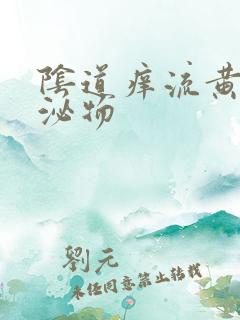 陰道痒流黄
泌物
劉元
未经同意禁止转载